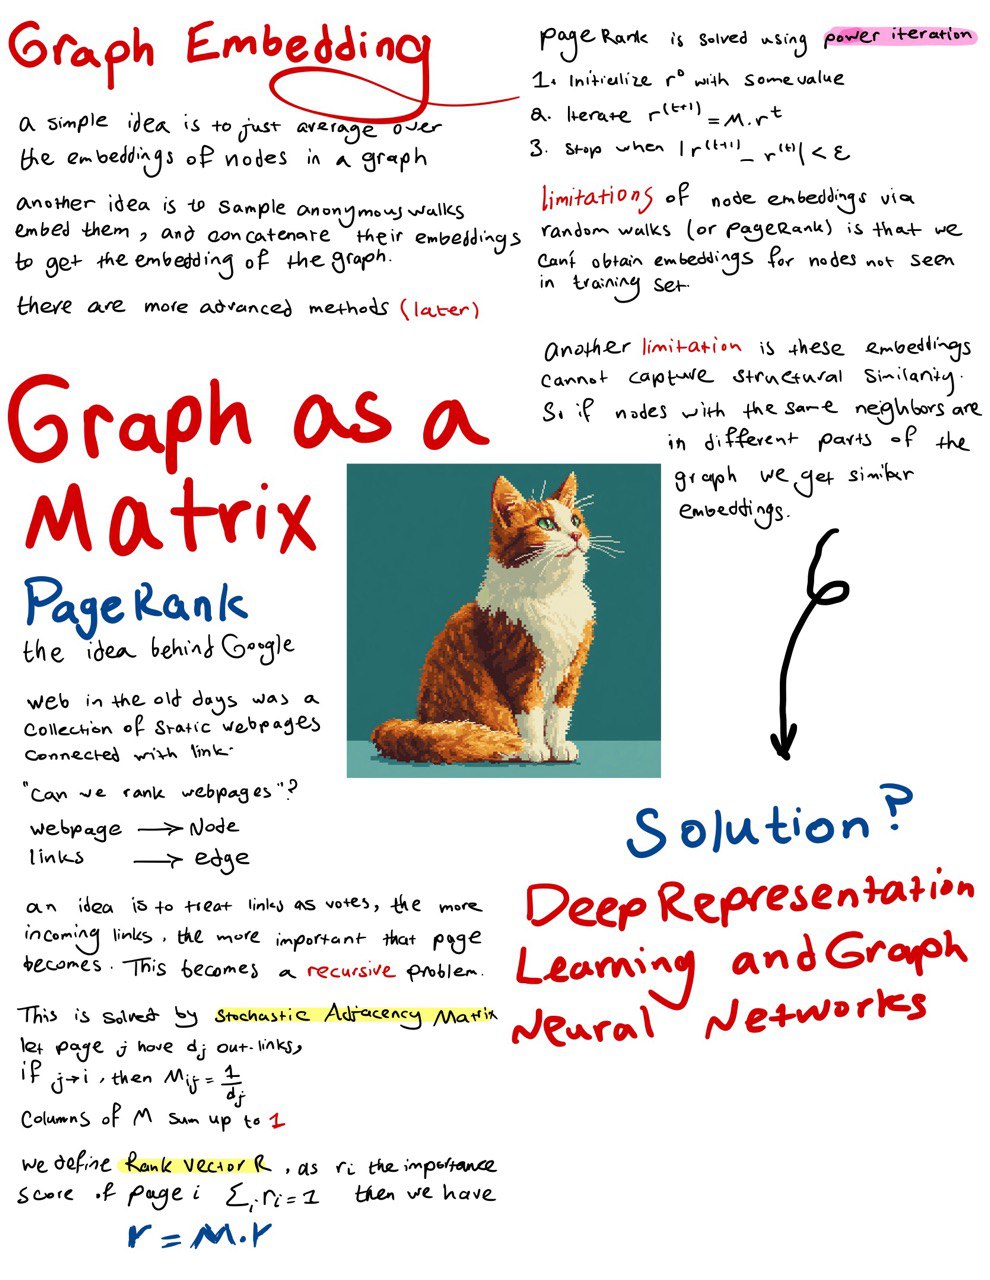 Graph Embedding
a simple idea is to just average over
the embeddings of nodes in a graph
another idea is to sample anonymous walks
embed them, and concatenate their embeddings
to get the embedding of the graph.
there are more advanced methods (later)
Graph as a
Matrix
PageRank
the idea behind Google
web in the old days was a
collection of static webpages
connected with link.
"Can we rank webpages"?
webpage → Node
links → edge
an idea is to treat links as votes, the more
incoming links, the more important that page
becomes. This becomes a recursive problem.
This is solved by Stochastic Adjacency Matrix
let page j have dj out-links,
if j→i, then Mij = 1/dj
Columns of M sum up to 1
we define Rank vector R, as ri the importance
score of page i Σi ri = 1 then we have
r = M.r
PageRank is solved using power iteration
1. Initialize r⁰ with some value
2. Iterate r^(t+1) = M.r^t
3. Stop when |r^(t+1) - r^(t)| < ε
limitations of node embeddings via
random walks (or PageRank) is that we
can't obtain embeddings for nodes not seen
in training set.
another limitation is these embeddings
cannot capture structural similarity.
So if nodes with the same neighbors are
in different parts of the
graph we get similar
embeddings.
Solution?
Deep Representation
Learning and Graph
Neural Networks